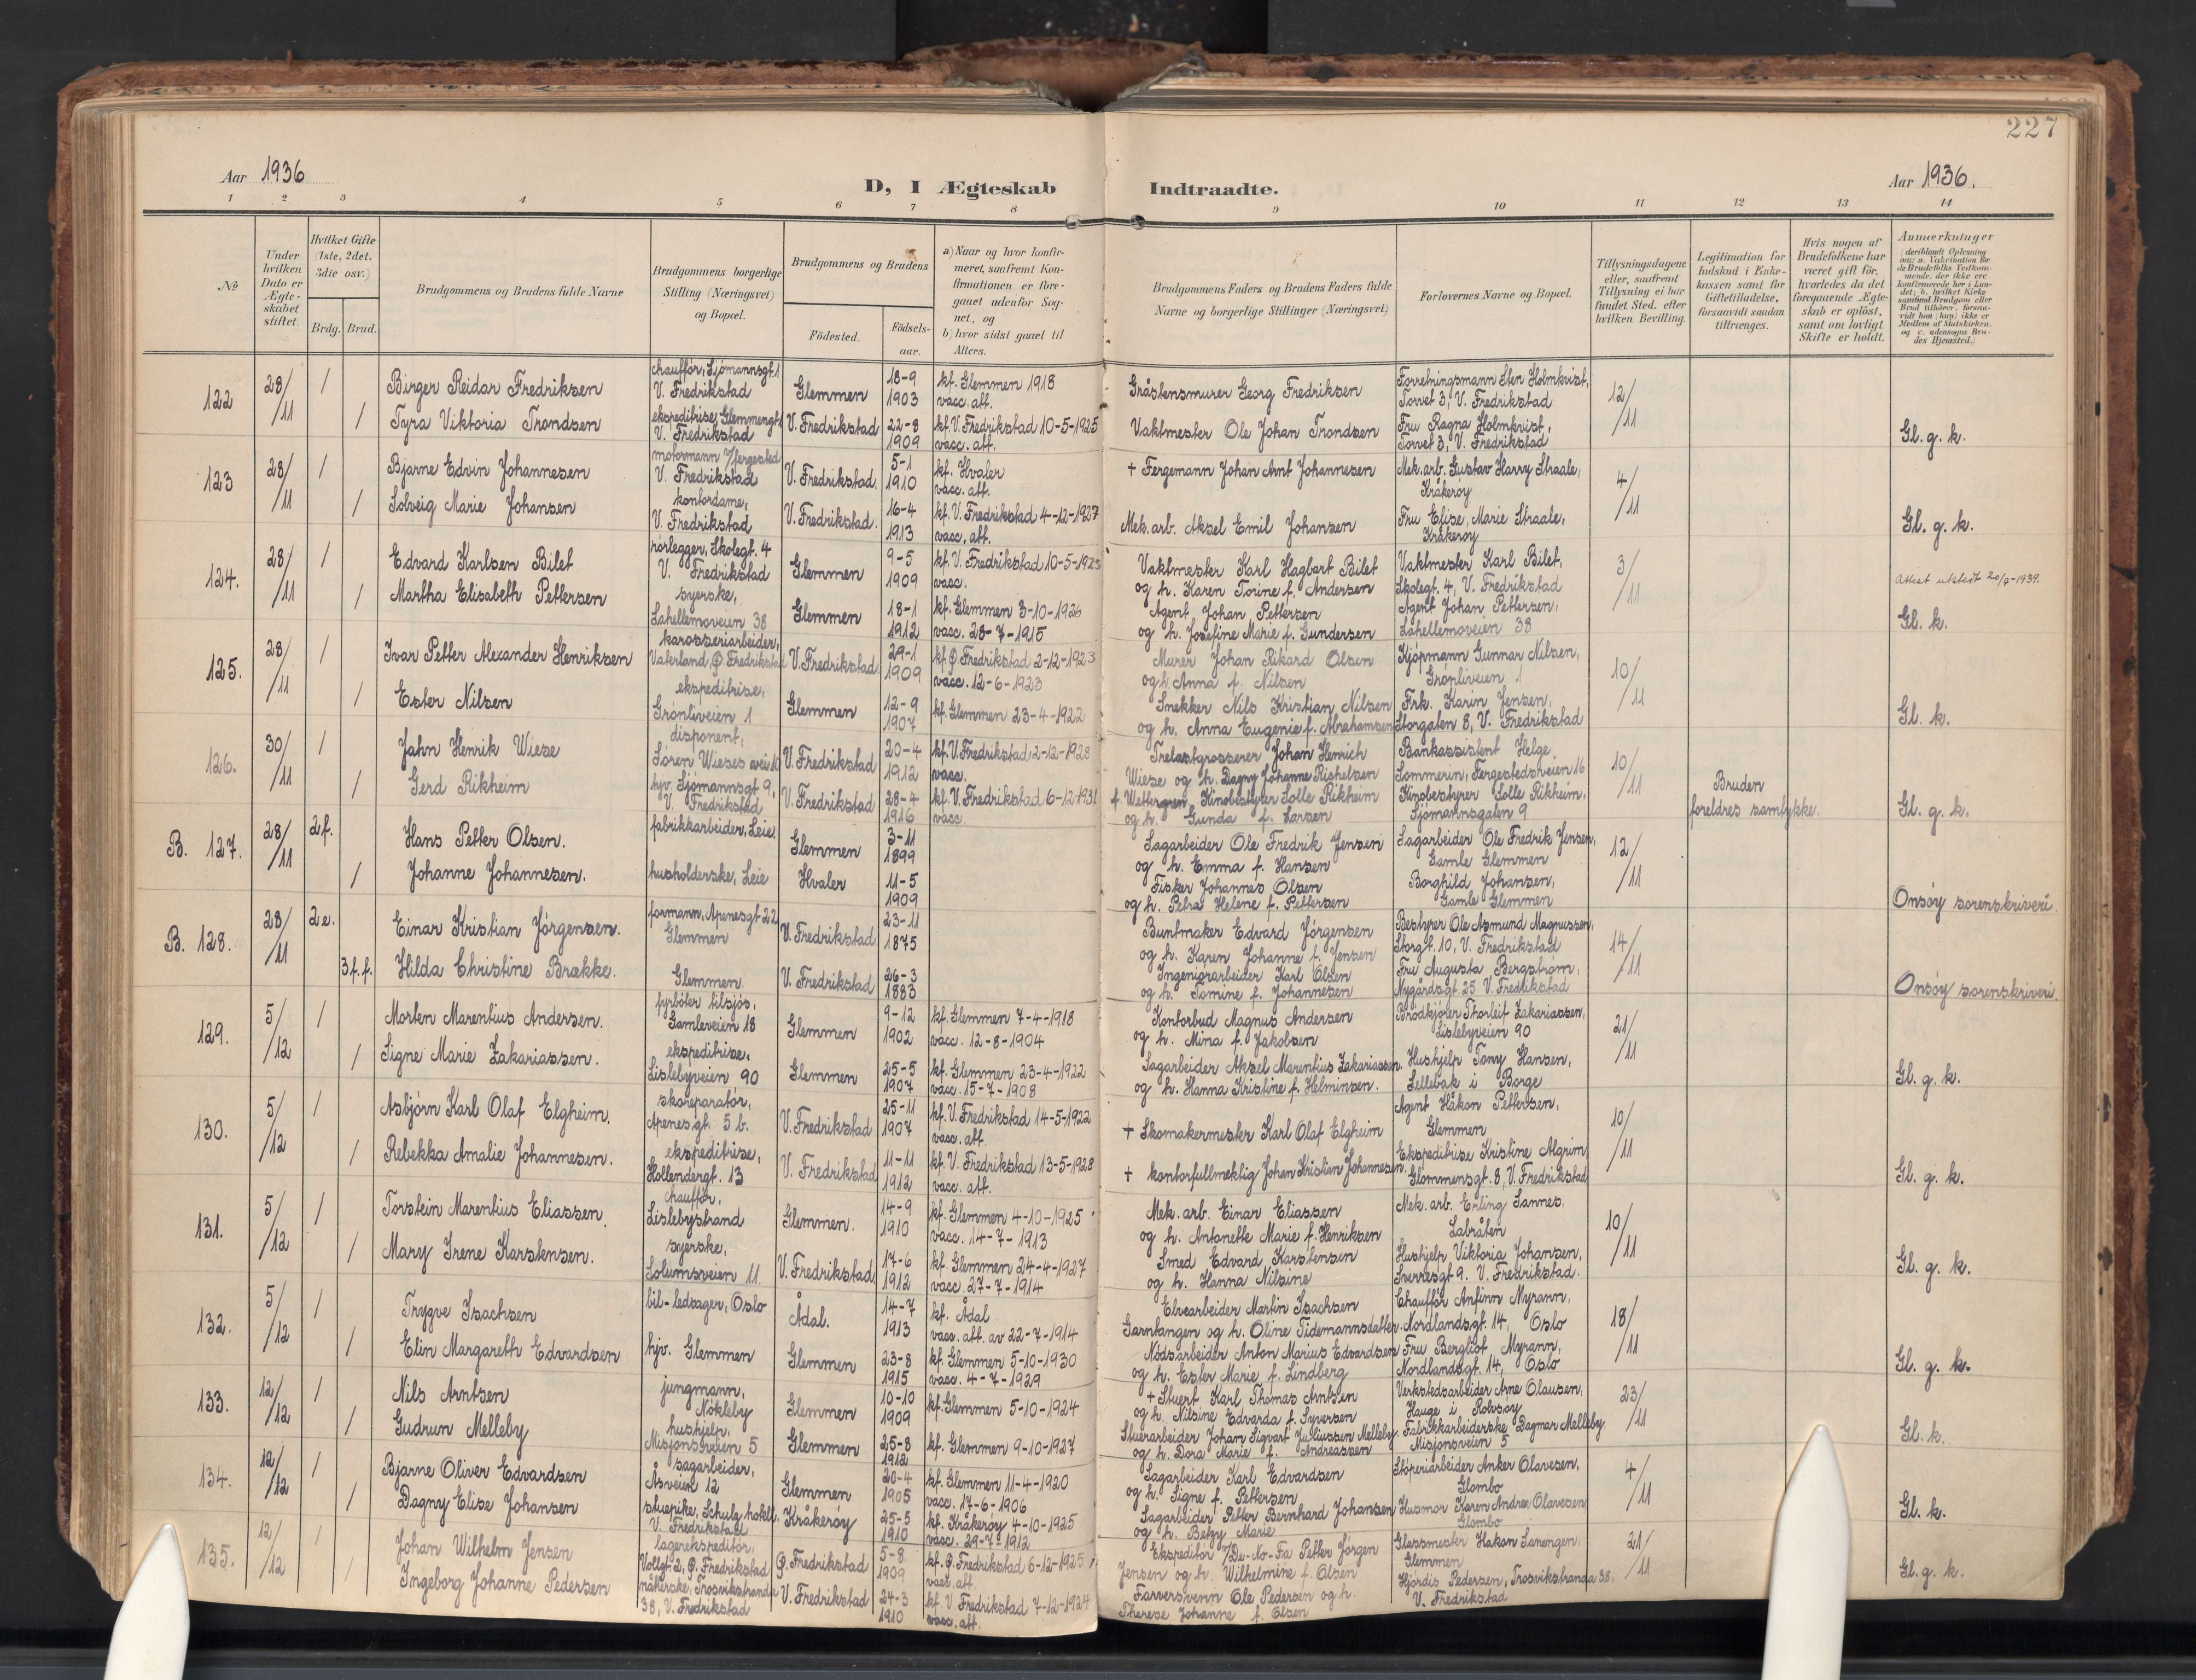 227
Aar 1936
D, I Ægteskab Indtraadte.
Aar 1936.
1 2 3 4 5 6 7 8 9 10 11 12 13 14
No
Under hvilken Dato er Ægteskabet stiftet.
Hvilket Gifte (1ste, 2det, 3die osv.)
Brdg. Brud.
Brudgommens og Brudens fulde Navne
Brudgommens borgerlige Stilling (Næringsvei) og Bopæl.
Brudgommens og Brudens
Fødested.
Fødsels-aar.
a) Naar og hvor konfirmeret, saafremt Konfirmationen er foregaaet udenfor Sognet, og
b) hvor sidst gaaet til Alters.
Brudgommens Faders og Brudens Faders fulde Navne og borgerlige Stillinger (Næringsvei)
Forlovernes Navne og Bopæl.
Tillysningsdagene eller, saafremt Tillysning ei har fundet Sted, efter hvilken Bevilling.
Legitimation for Indskud i Enkekassen samt for Giftetilladelse, forsaavidt saadan tiltrænges.
Hvis nogen af Brudefolkene har været gift før, hvorledes da det foregaaende Ægteskab er opløst, samt om lovligt Skifte er holdt.
Anmærkninger
(deriblandt Oplysning om: a. Vakcination for de Brudefolks Vedkommende, der ikke ere konfirmerede her i Landet; b. hvilket Kirkesamfund Brudgom eller Brud tilhører, forsaavidt han (hun) ikke er Medlem af Statskirken, og c. udensogns Brudes Hjemsted.)
122
28/11
1
Birger Reidar Fredriksen
chauffør, Sjømannsgt. 1
V. Fredrikstad
Glemmen
18-9
1903
kf. Glemmen 1918
vacc. att.
Gråstensmurer Georg Fredriksen
Forretningsmann Sten Holmkvist,
Torvet 3, V. Fredrikstad
12/11
1
Tyra Viktoria Trondsen
ekspeditrise, Glemmengt.
V. Fredrikstad
V. Fredrikstad
22-8
1909
kf. V. Fredrikstad 10-5-1925
vacc. att.
Vaktmester Ole Johan Trondsen
Fru Ragna Holmkvist,
Torvet 3, V. Fredrikstad
Gl. g. k.
123
28/11
1
Bjarne Edvin Johannesen
motormann v/fergested
V. Fredrikstad
V. Fredrikstad.
5-1
1910
kf. Hvaler
vacc. att.
+ Fergemann Johan Arnt Johannesen
Mek. arb. Gustav Harry Straale,
Kråkerøy
4/11
1
Solveig Marie Johansen
kontordame,
V. Fredrikstad
V. Fredrikstad.
16-4
1913
kf. V. Fredrikstad 4-12-1927
vacc. att.
Mek. arb. Aksel Emil Johansen
Fru Elise Marie Straale,
Kråkerøy
Gl. g. k.
124.
28/11
1
Edvard Karlsen Bilet
rørlegger, Skolegt. 4
V. Fredrikstad
Glemmen
9-5
1909
kf. V. Fredrikstad 10-5-1925
vacc.
Vaktmester Karl Hagbart Bilet
og h. Karen Torine f. Andersen
Vaktmester Karl Bilet,
Skolegt. 4, V. Fredrikstad
3/11
Attest utstedt 20/9-1939.
1
Martha Elisabeth Pettersen
syerske,
Lahellemoveien 38
Glemmen
18-1
1912
kf. Glemmen 3-10-1926
vacc. 28-7-1915
Agent Johan Pettersen
og h. Josefine Marie f. Gundersen
Agent Johan Pettersen,
Lahellemoveien 38
Gl. k.
125.
28/11
1
Ivar Petter Alexander Henriksen
karosseriarbeider,
Vaterland, Ø Fredrikstad
V. Fredrikstad
29-1
1909
kf. Ø Fredrikstad 2-12-1923
vacc. 12-6-1923
Murer Johan Rikard Olsen
og h. Anna f. Nilsen
Kjøpmann Gunnar Nilsen,
Grønliveien 1
10/11
1
Ester Nilsen
ekspeditrise,
Grønliveien 1
Glemmen
12-9
1907
kf. Glemmen 23-4-1922
Snekker Nils Kristian Nilsen
og h. Anna Eugenie f. Abrahamsen
Frk. Karin Jensen,
Storgaten 8, V. Fredrikstad
Gl. k.
126.
30/11
1
Jahn Henrik Wiese
disponent,
Søren Wieses vei 10
V. Fredrikstad
20-4
1912
kf. V. Fredrikstad 2-12-1928
vacc.
Trelastgrosserer Johan Henrich
Wiese og h. Dagny Johanne Richelsen
f. Wettergren
Bankassistent Helge
Sommerin, Fergestedsveien 16
10/11
1
Gerd Rikheim
hjv. Sjømannsgt 9,
V. Fredrikstad
V. Fredrikstad
28-4
1916
kf. V. Fredrikstad 6-12-1931
vacc.
Kinobestyrer Solle Rikheim
og h. Gunda f. Larsen
Kinobestyrer Solle Rikheim,
Sjømannsgaten 9
Bruden
foreldres samtykke.
Gl. g. k.
B. 127.
28/11
2 f.
Hans Petter Olsen.
fabrikkarbeider, Leie
Glemmen
3-11
1899
Sagarbeider Ole Fredrik Jensen
og h. Emma f. Hansen
Sagarbeider Ole Fredrik Jensen,
Gamle Glemmen
12/11
1
Johanne Johannesen.
husholderske, Leie
Hvaler
11-5
1909
Fisker Johannes Olsen
og h. Petra Helene f. Pettersen
Borghild Johansen,
Gamle Glemmen
Onsøy sorenskriveri.
B. 128.
28/11
2 e.
Einar Kristian Jørgensen.
formann, Apenesgt 22
Glemmen
V. Fredrikstad
23-11
1875
Buntmaker Edvard Jørgensen
og h. Karen Johanne f. Jensen
Bestyrer Ole Asmund Magnussen,
Storgt. 10, V. Fredrikstad
14/11
3 f. f.
Hilda Christine Brække.
Glemmen.
V. Fredrikstad
26-3
1883
Ingeniørarbeider Karl Olsen
og h. Tomine f. Johannesen
Fru Augusta Bergstrøm,
Nygårdsgt 25 V. Fredrikstad
Onsøy sorenskriveri.
129.
5/12
1
Morten Marentius Andersen.
fyrbøter tilsjøs,
Gamleveien 18
Glemmen
9-12
1902
kf. Glemmen 7-4-1918
vacc. 12-8-1904
Kontorbud Magnus Andersen
og h. Mina f. Jakobsen
Brødkjører Thorleif Zakariassen,
Lislebyveien 90
21/11
1
Signe Marie Zakariassen.
ekspeditrise,
Lislebyveien 90
Glemmen
25-5
1907
kf. Glemmen 23-4-1922
vacc. 15-7-1908
Sagarbeider Aksel Marentius Zakariassen.
og h. Hanna Kristine f. Helminsen.
Hushjelp Tony Hansen,
Sellebak i Borge
Gl. g. k.
130.
5/12
1
Asbjørn Karl Olaf Elgheim.
skoreparatør,
Apenesgt. 5 b.
V. Fredrikstad
25-11
1907
kf. V. Fredrikstad 14-5-1922
vacc. att.
+ Skomakermester Karl Olaf Elgheim
Agent Håkon Pettersen,
Glemmen
10/11
1
Rebekka Amalie Johannesen.
ekspeditrise,
Hollendergt. 13
V. Fredrikstad
11-11
1912
kf. V. Fredrikstad 13-5-1928
vacc. att.
+ kontorfullmektig Johan Kristian Johannesen.
Ekspeditrise Kristine Algrim,
Glommensgt. 8, V. Fredrikstad
Gl. g. k.
131.
5/12
1
Torstein Marentius Eliassen.
chauffør,
Lislebystrand
Glemmen.
14-9
1910
kf. Glemmen 4-10-1925
vacc. 14-7-1913
Mek. arb. Einar Eliassen
og h. Antonette Marie f. Henriksen
Mek. arb. Erling Sannes,
Labråten
10/11
1
Mary Irene Karstensen.
syerske,
Solumsveien 11.
V. Fredrikstad
17-6
1912
kf. Glemmen 24-4-1927
vacc 27-7-1914
Smed Edvard Karstensen
og h. Hanna Nilsine
Hushjelp Viktoria Johansen,
Sverresgt 9. V. Fredrikstad.
Gl. g. k.
132.
5/12
1
Trygve Isachsen
bil-ledsager, Oslo
Ådal.
14-7
1913
kf. Ådal
vacc. att. av 22-7-1914
Elvearbeider Martin Isachsen
Garntangen og h. Oline Tidemannsdatter.
Chauffør Anfinn Myrann,
Nordlandsgt. 14, Oslo
18/11
1
Elin Margareth Edvardsen
hjv. Glemmen
Glemmen
23-8
1915
kf. Glemmen 5-10-1930
vacc. 4-7-1929
Nødsarbeider Anton Marius Edvardsen
og h. Ester Marie f. Lindberg
Fru Bergliot Myrann,
Nordlandsgt. 14, Oslo
Gl. g. k.
133.
12/12
1
Nils Arntsen
jungmann,
Nøkleby
Glemmen
10-10
1909
kf. Glemmen 5-10-1924
+ Stuert Karl Thomas Arntsen
og h. Nilsine Edvarda f. Syversen
Verkstedsarbeider Arne Olausen,
Hauge i Rolvsøy
23/11
1
Gudrun Melleby
hushjelp,
Misjonsveien 5
Glemmen
25-8
1912
kf. Glemmen 9-10-1927
Stuerarbeider Johan Sigvart Juliussen Melleby
og h. Dora Marie f. Andreassen
Fabrikkarbeiderske Dagmar Melleby.
Misjonsveien 5
Gl. k.
134.
12/12
1
Bjarne Oliver Edvardsen
sagarbeider,
Åsveien 12
Glemmen
20-4
1905
kf. Glemmen 11-4-1920
vacc. 17-6-1906
Sagarbeider Karl Edvardsen
og h. Signe f. Pettersen
Støperiarbeider Anker Olavesen,
Glombo
4/11
1
Dagny Elise Johansen
stuepike, Schulz hotell,
V. Fredrikstad
Kråkerøy
25-5
1910
kf. Kråkerøy 4-10-1925
vacc. 29-7-1912
Sagarbeider Petter Bernhard Johansen
og h. Betzy Marie
Husmor Karen Andrea Olavesen
Glombo
Gl. k.
135.
12/12
1
Johan Wilhelm Jensen
lagerekspeditør,
Vollgt. 2, Ø. Fredrikstad
Ø. Fredrikstad
5-8
1909
kf. Ø. Fredrikstad 6-12-1925
vacc. att.
Ekspeditør v/De-No-Fa Petter Jørgen
Jensen og h. Wilhelmine f. Olsen
Glassmester Håkon Sanengen,
Glemmen
21/11
1
Ingeborg Johanne Pedersen
nåterske, Trosvikstranda
38, V. Fredrikstad
V. Fredrikstad
24-3
1910
kf. V Fredrikstad 7-12-1924
vacc. att.
Farversvenn Ole Pedersen og h.
Therese Johanne f. Olsen
Hjørdis Pedersen, Trosvikstranda 38,
V. Fredrikstad
Gl. g. k.